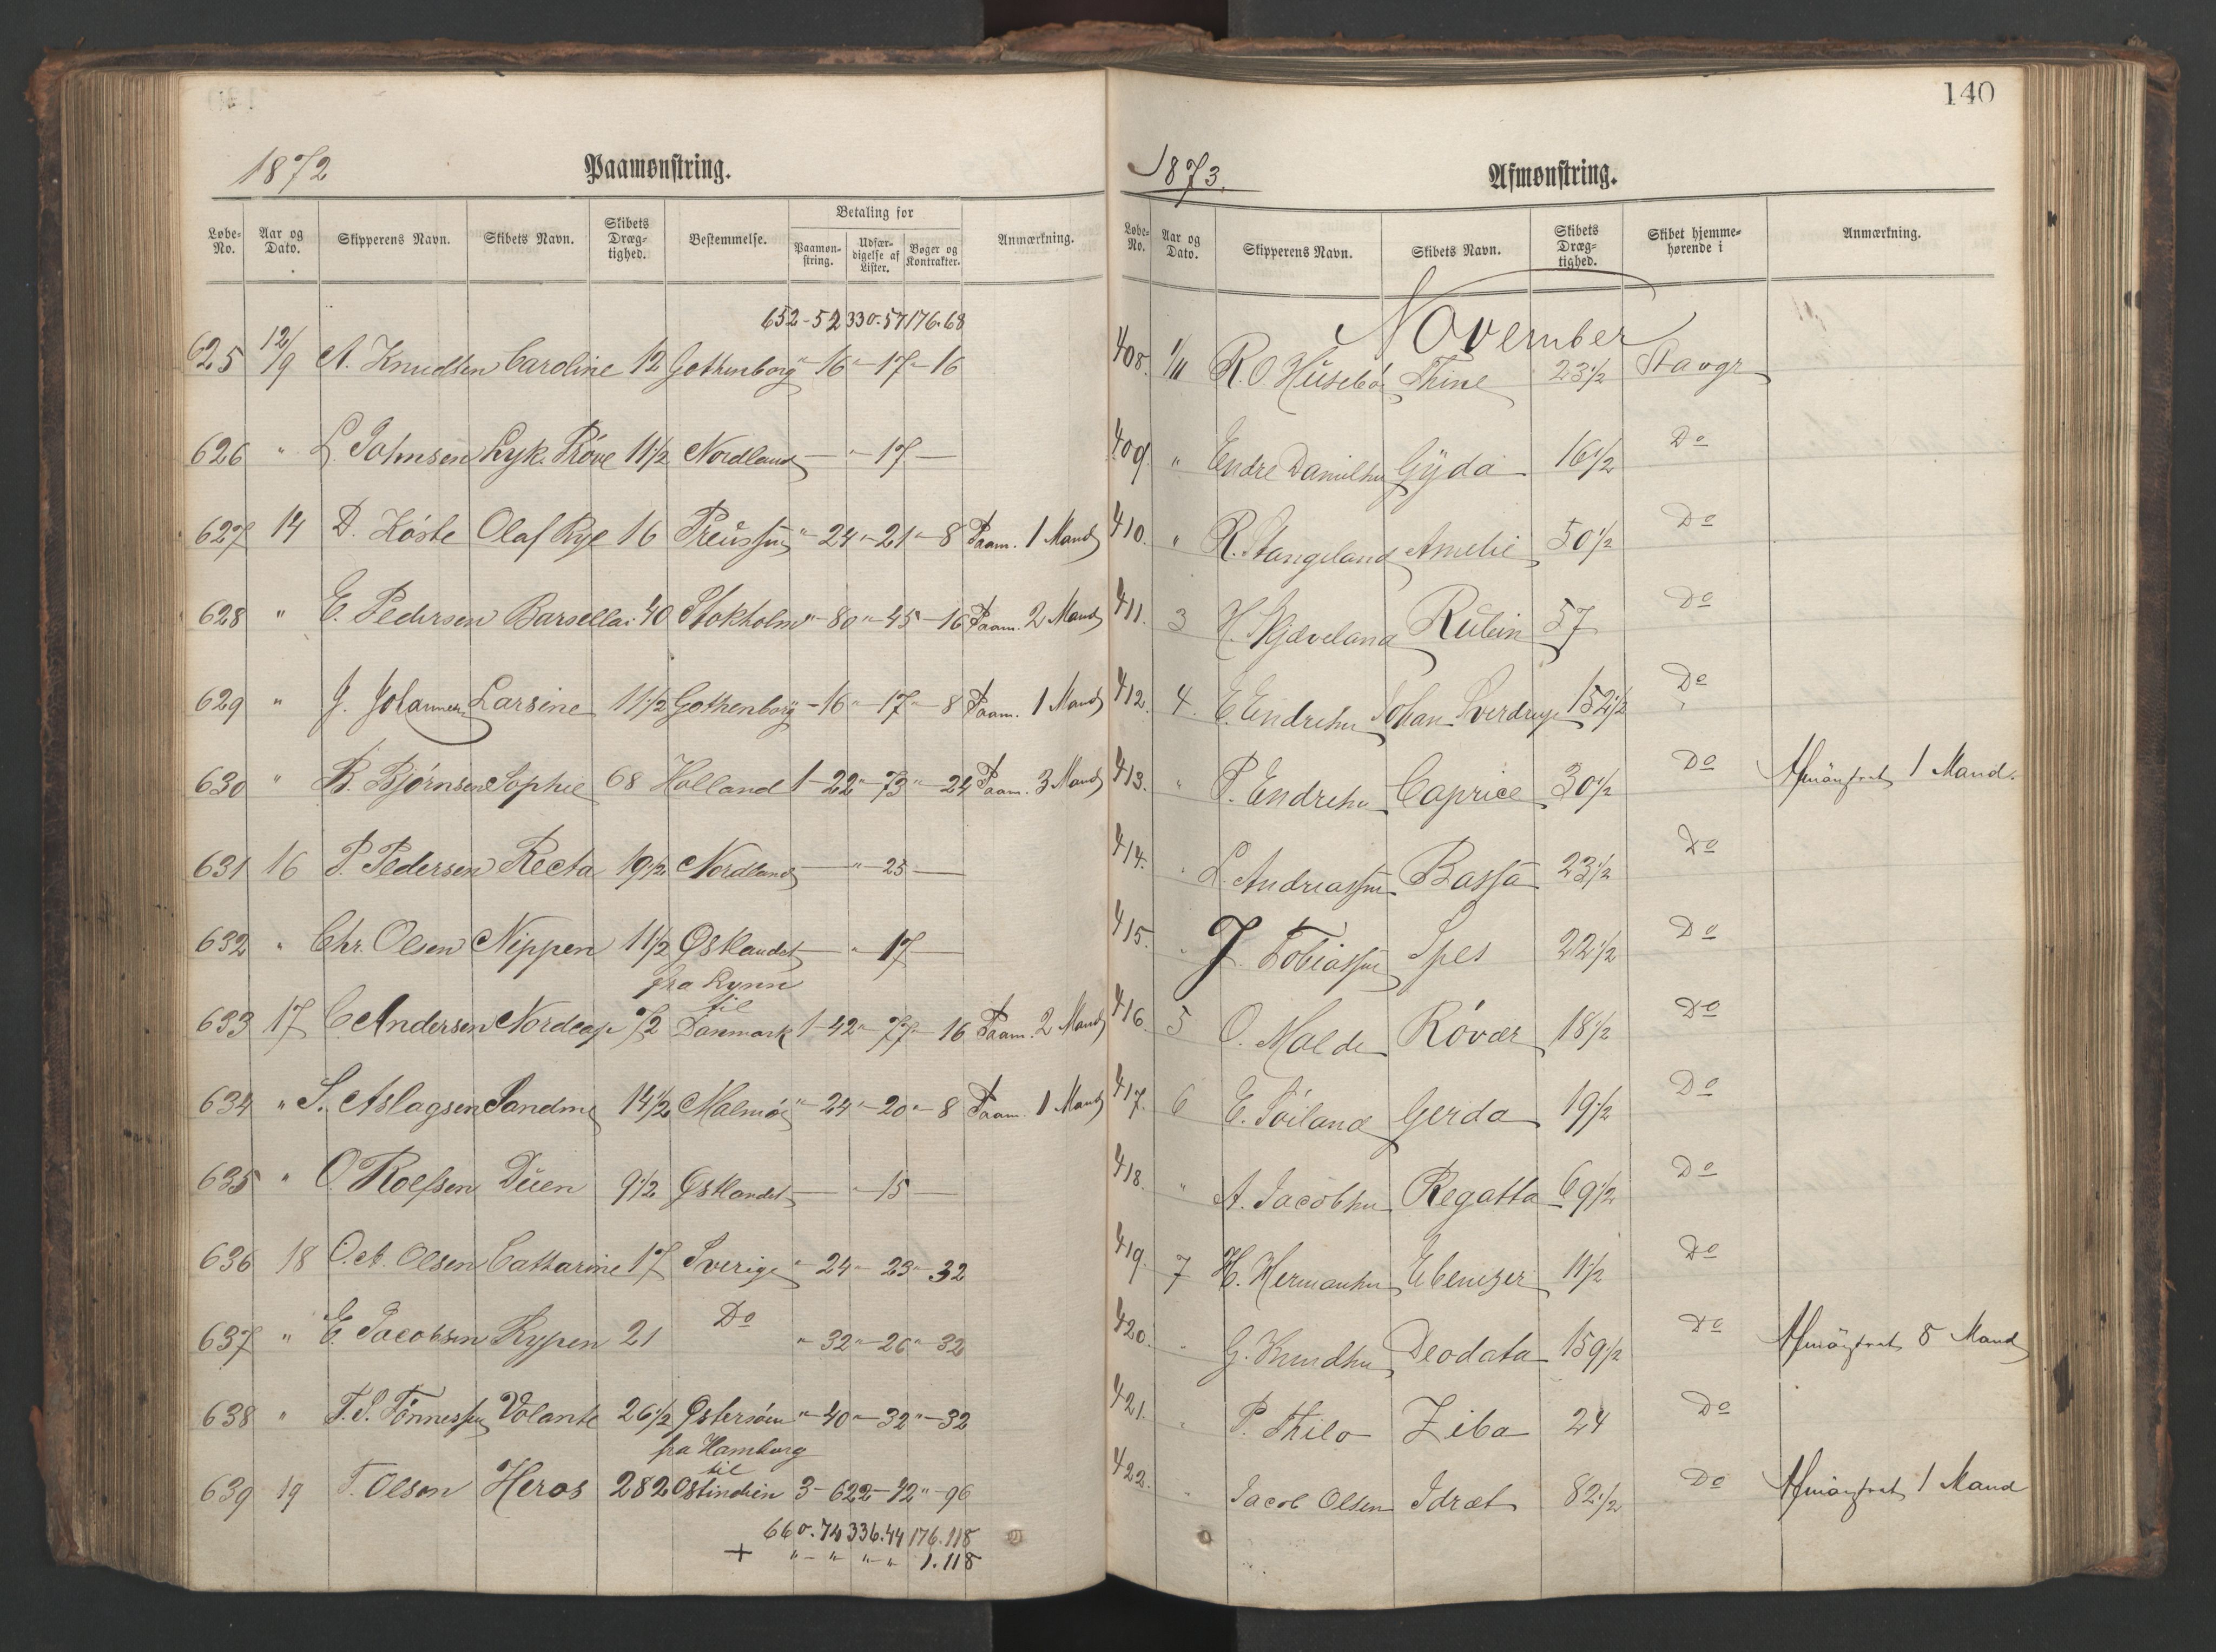 1872 Paamønstring.
Løbe-No. Aar og Dato. Skipperens Navn. Skibets Navn. Skibets Dræg-tighed. Bestemmelse. Betaling for Paamøn-string. Udfær-digelse af Lister. Bøger og Kontrakter. Anmærkning.
652-52 330.57 176.68
625 12/9 A. Knudsen Caroline 12 Gothenborg " 16 " 17 " 16
626 " L Johnsen Lyk. Prøve 11 1/2 Nordland — " 17 —
627 14 D. Høste Olaf Rye 16 Preussen " 24 " 21 " 8 Paam. 1 Mand
628 " E. Pedersen Barsella 40 Stokholm " 80 " 45 " 16 Paam. 2 Mand
629 " J. Johannesen Larsine 11 1/2 Gothenborg " 16 " 17 " 8 Paam. 1 Mand
630 " B. Bjørnsen Sophie 68 Holland 1 - 22 " 73 " 24 Paam. 3 Mand
631 16 P. Pedersen Recta 19 1/2 Nordland — " 25 —
632 " Chr. Olsen Nippen 11 1/2 Østlandet — " 17 —
fra
til
633 17 C. Andersen Nordcap 72 Danmark 1 - 42 " 77 " 16 Paam. 2 Mand
634 " S. Aslagsen 14 1/2 Malmöe " 24 " 20 " 8 Paam. 1 Mand
635 " O. Roelsen Duen 9 1/2 Østlandet — " 15 —
636 18 O. A. Olsen Catharine 17 Sverige " 24 " 23 " 32
637 " E. Jacobsen Rypen 21 Do " 32 " 26 " 32
638 " T. S. Tønnessen Volante 26 1/2 Østersøen " 40 " 32 " 32
fra Hamburg
til
639 19 T. Olsen Heros 282 Ostindien 3 - 62 2 - 42 " 96
660.74 336.44 176.118
+ " - " " - " 1.118
140
1873. Afmønstring.
Løbe-No. Aar og Dato. Skipperens Navn. Skibets Navn. Skibets Dræg-tighed. Skibet hjemme-hørende i Anmærkning.
November
408. 1/11 R. O. Husebø Thine 23 1/2 Stavgr
409. " Endre Danielsen Gyda 16 1/2 Do
410. " R. Stangeland Amelie 50 1/2 Do
411. 3 H. Kjæveland Rubin 57 Do
412. 4. E. Endresen Johan Sverdrup 152 1/2 Do
413. " P. Endresen Caprice 30 1/2 Do Afmönstret 1 Mand.
414. " L. Andreassen Bassa 23 1/2 Do
415. " J. Tobiassen Spes 22 1/2 Do
416. 5 O. Malde Røvær 18 1/2 Do
417. 6 E. Söiland Gerda 19 1/2 Do
418. " A. Jacobsen Regatta 69 1/2 Do
419. 7 H. Hermansen Ebenezer 11 1/2 Do
420. " G. Knudsen Deodata 159 1/2 Do Afmönstret 8 Mand
421. " P. Thilo Ziba 24 Do
422. " Jacob Olsen Idræt 82 1/2 Do Afmönstret 1 Mand